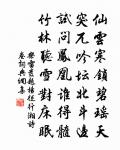 仙雲寒鎖碧瑤天
突兀吟坛北斗邊
試問鳳凰誰得髓
竹林聽雪對床眠
樂雷發題楊行湘詩
卷詞典調集